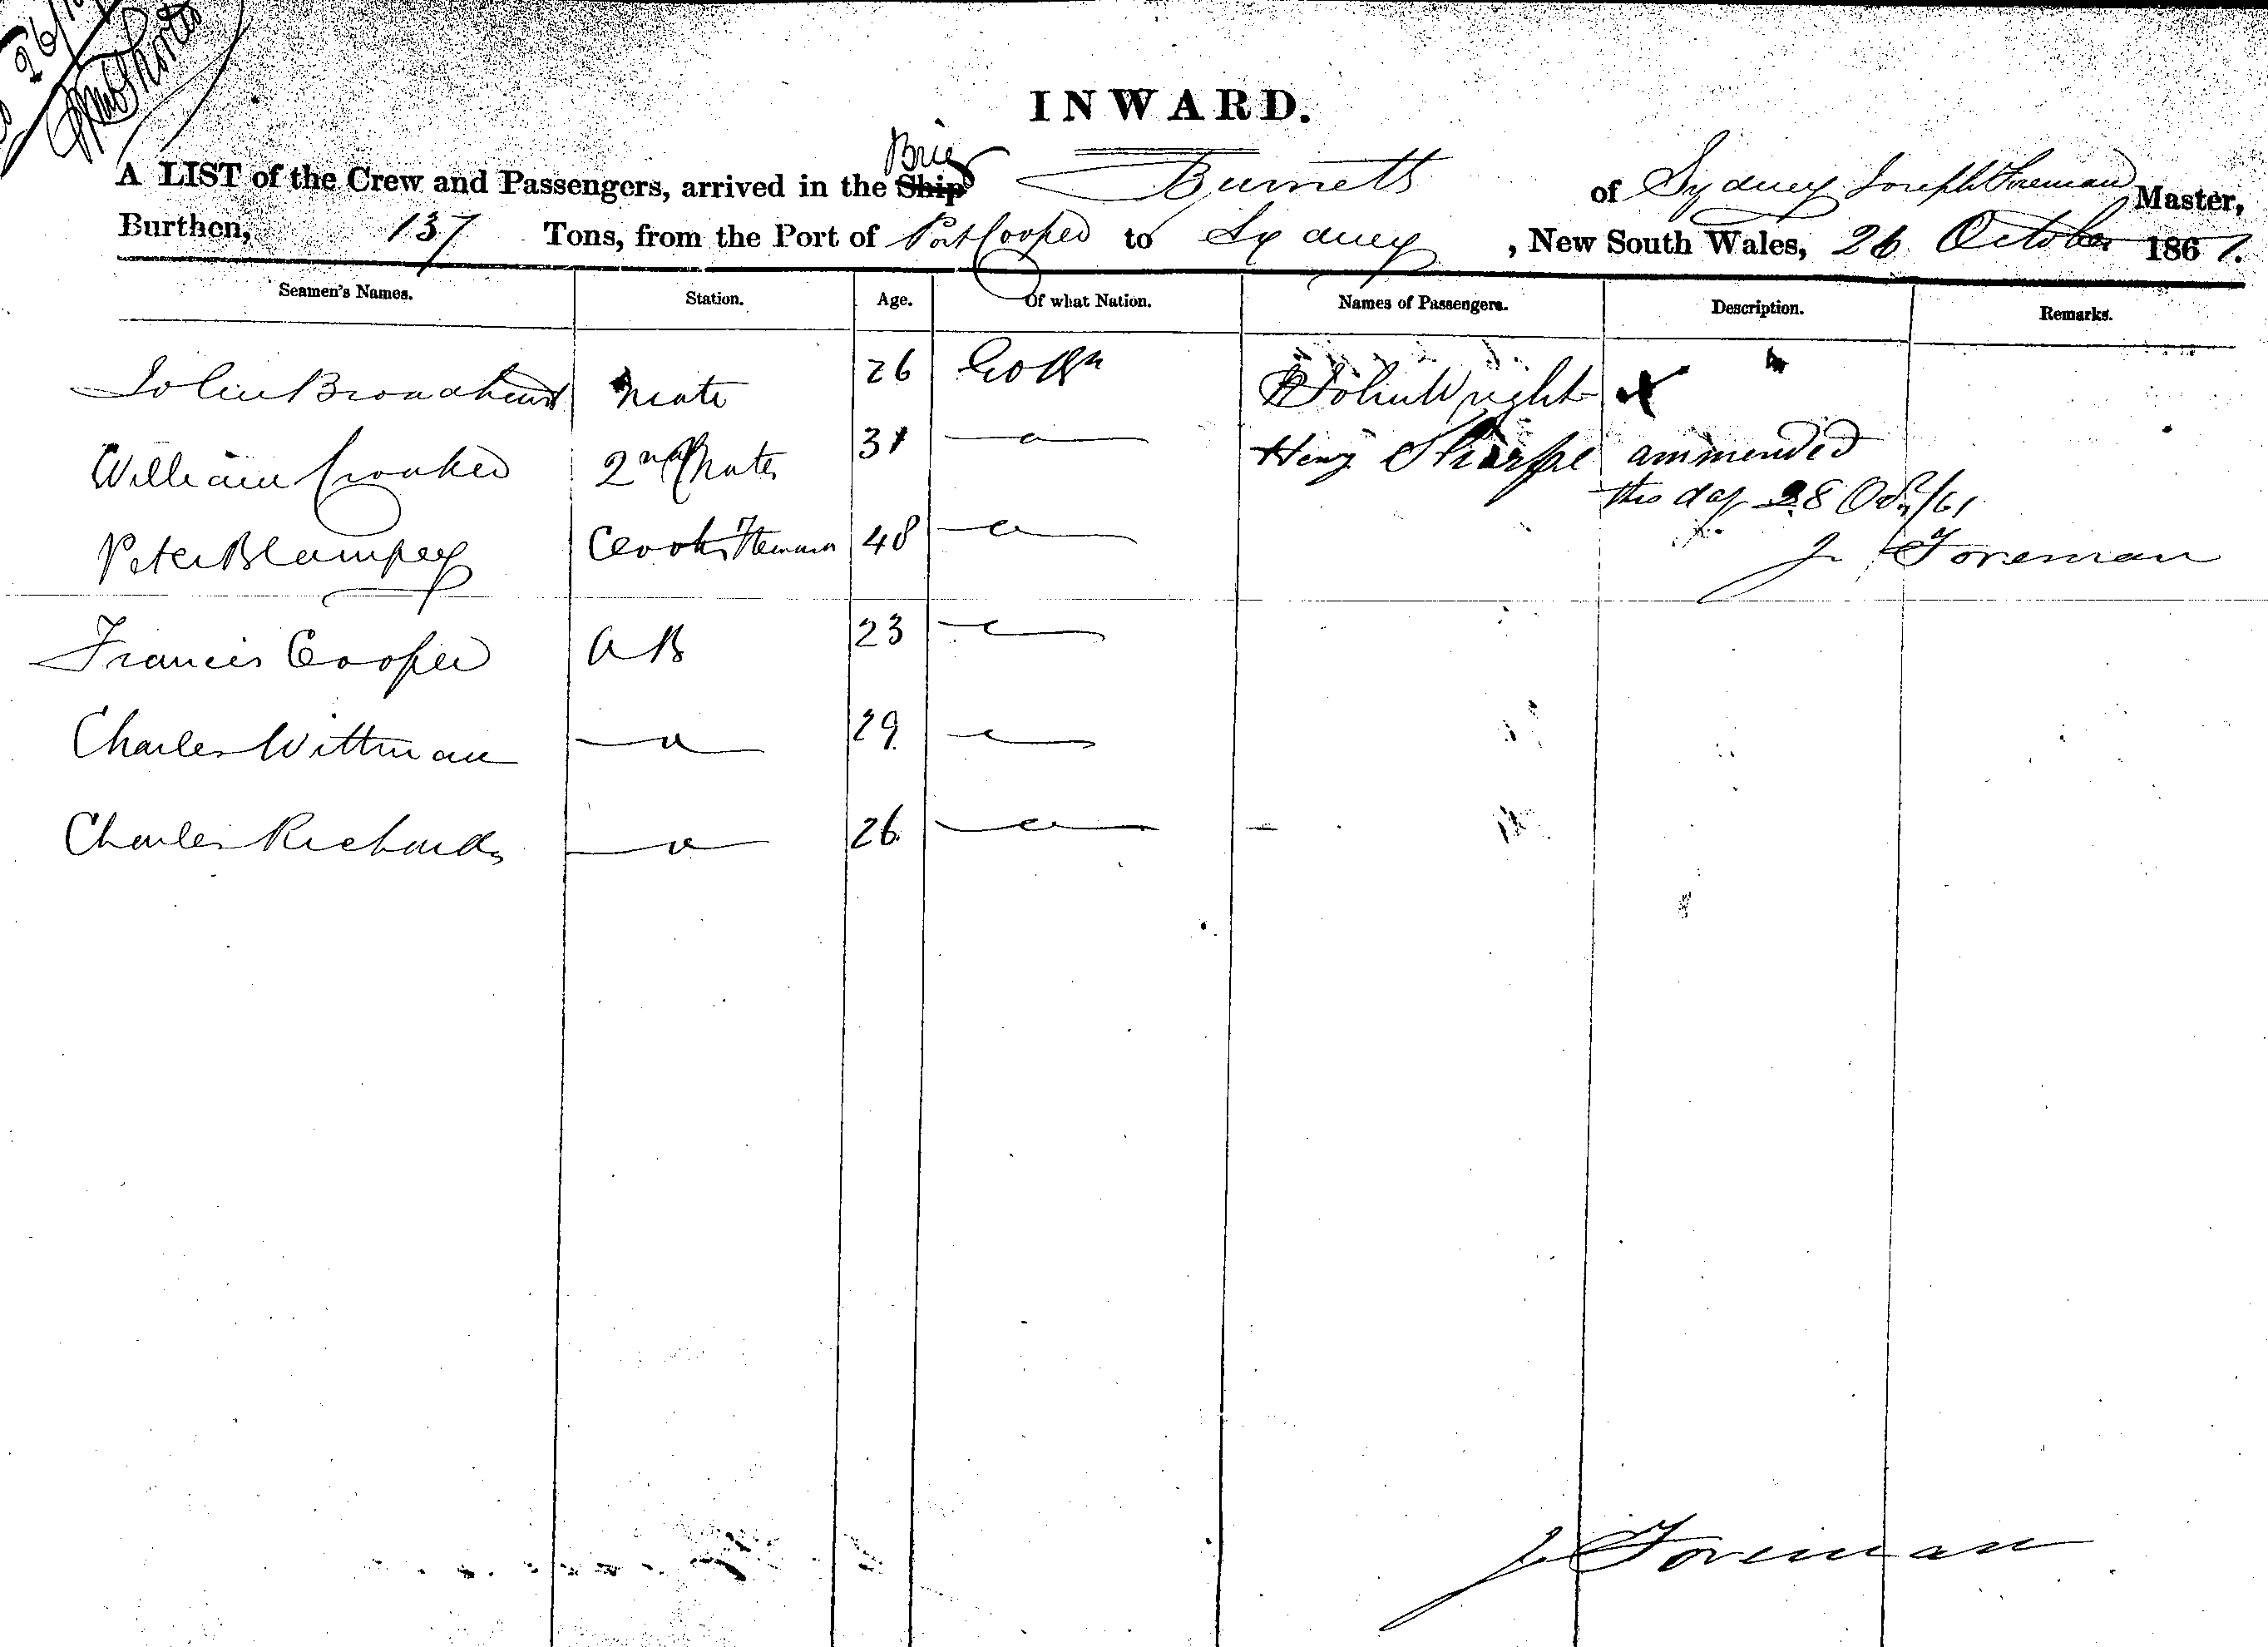 26/10
INWARD.
Brig
A LIST of the Crew and Passengers, arrived in the Ship Burnett of Sydney Joseph Foreman Master,
Burthen, 137 Tons, from the Port of Port Cooper to Sydney, New South Wales, 26 October 1861.
Seamen's Names. Station. Age. Of what Nation. Names of Passengers. Description. Remarks.
John Broadhurst Mate 26 John Wright x
William Croaker 2nd Mate 31 Henry Sharpe ammended
this day 28 Oct/61
Peter Blampey Cook & Steward 48 J Foreman
Francis Cooper AB 23
Charles Wittman 29
Charles Richards 26
J Foreman